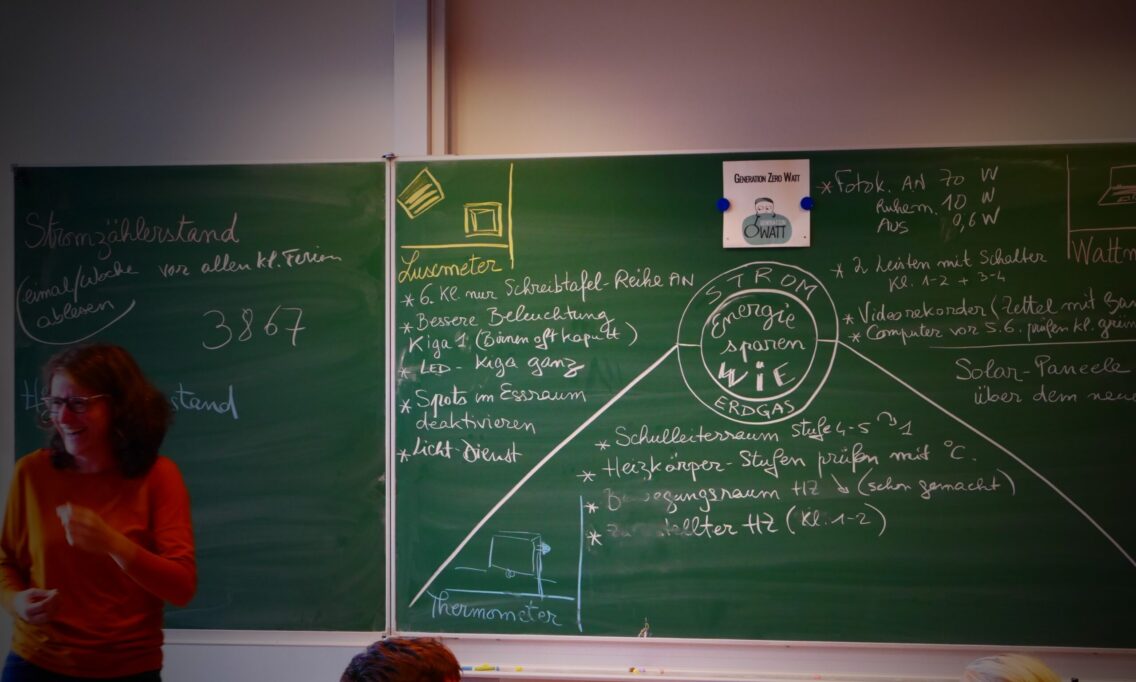 Stromzählerstand
(einmal/Woche vor allen kl. Ferien
ablesen)
3867
stand
Luxmeter
* 6. Kl. nur Schreibtafel-Reihe AN
* Bessere Beleuchtung
Kiga 1 (Birnen oft kaputt)
* LED - Kiga ganz
* Spots im Essraum
deaktivieren
* Licht-Dienst
GENERATION ZERO WATT
WATT
STROM
Energie
sparen
WiE
ERDGAS
* Fotok. AN 70 W
Ruhem. 10 W
AUS 0,6 W
* 2 Leisten mit Schalter
Kl. 1-2 + 3-4
* Videorekorder (Zettel mit
* Computer vor 5.6. prüfen kl.
Solar-Paneele
über dem neue
Wattm
* Schulleiterraum Stufe 4-5 1
* Heizkörper-Stufen prüfen mit °C.
* HZ ↘ (schon gemacht)
* HZ (Kl. 1-2)
Thermometer